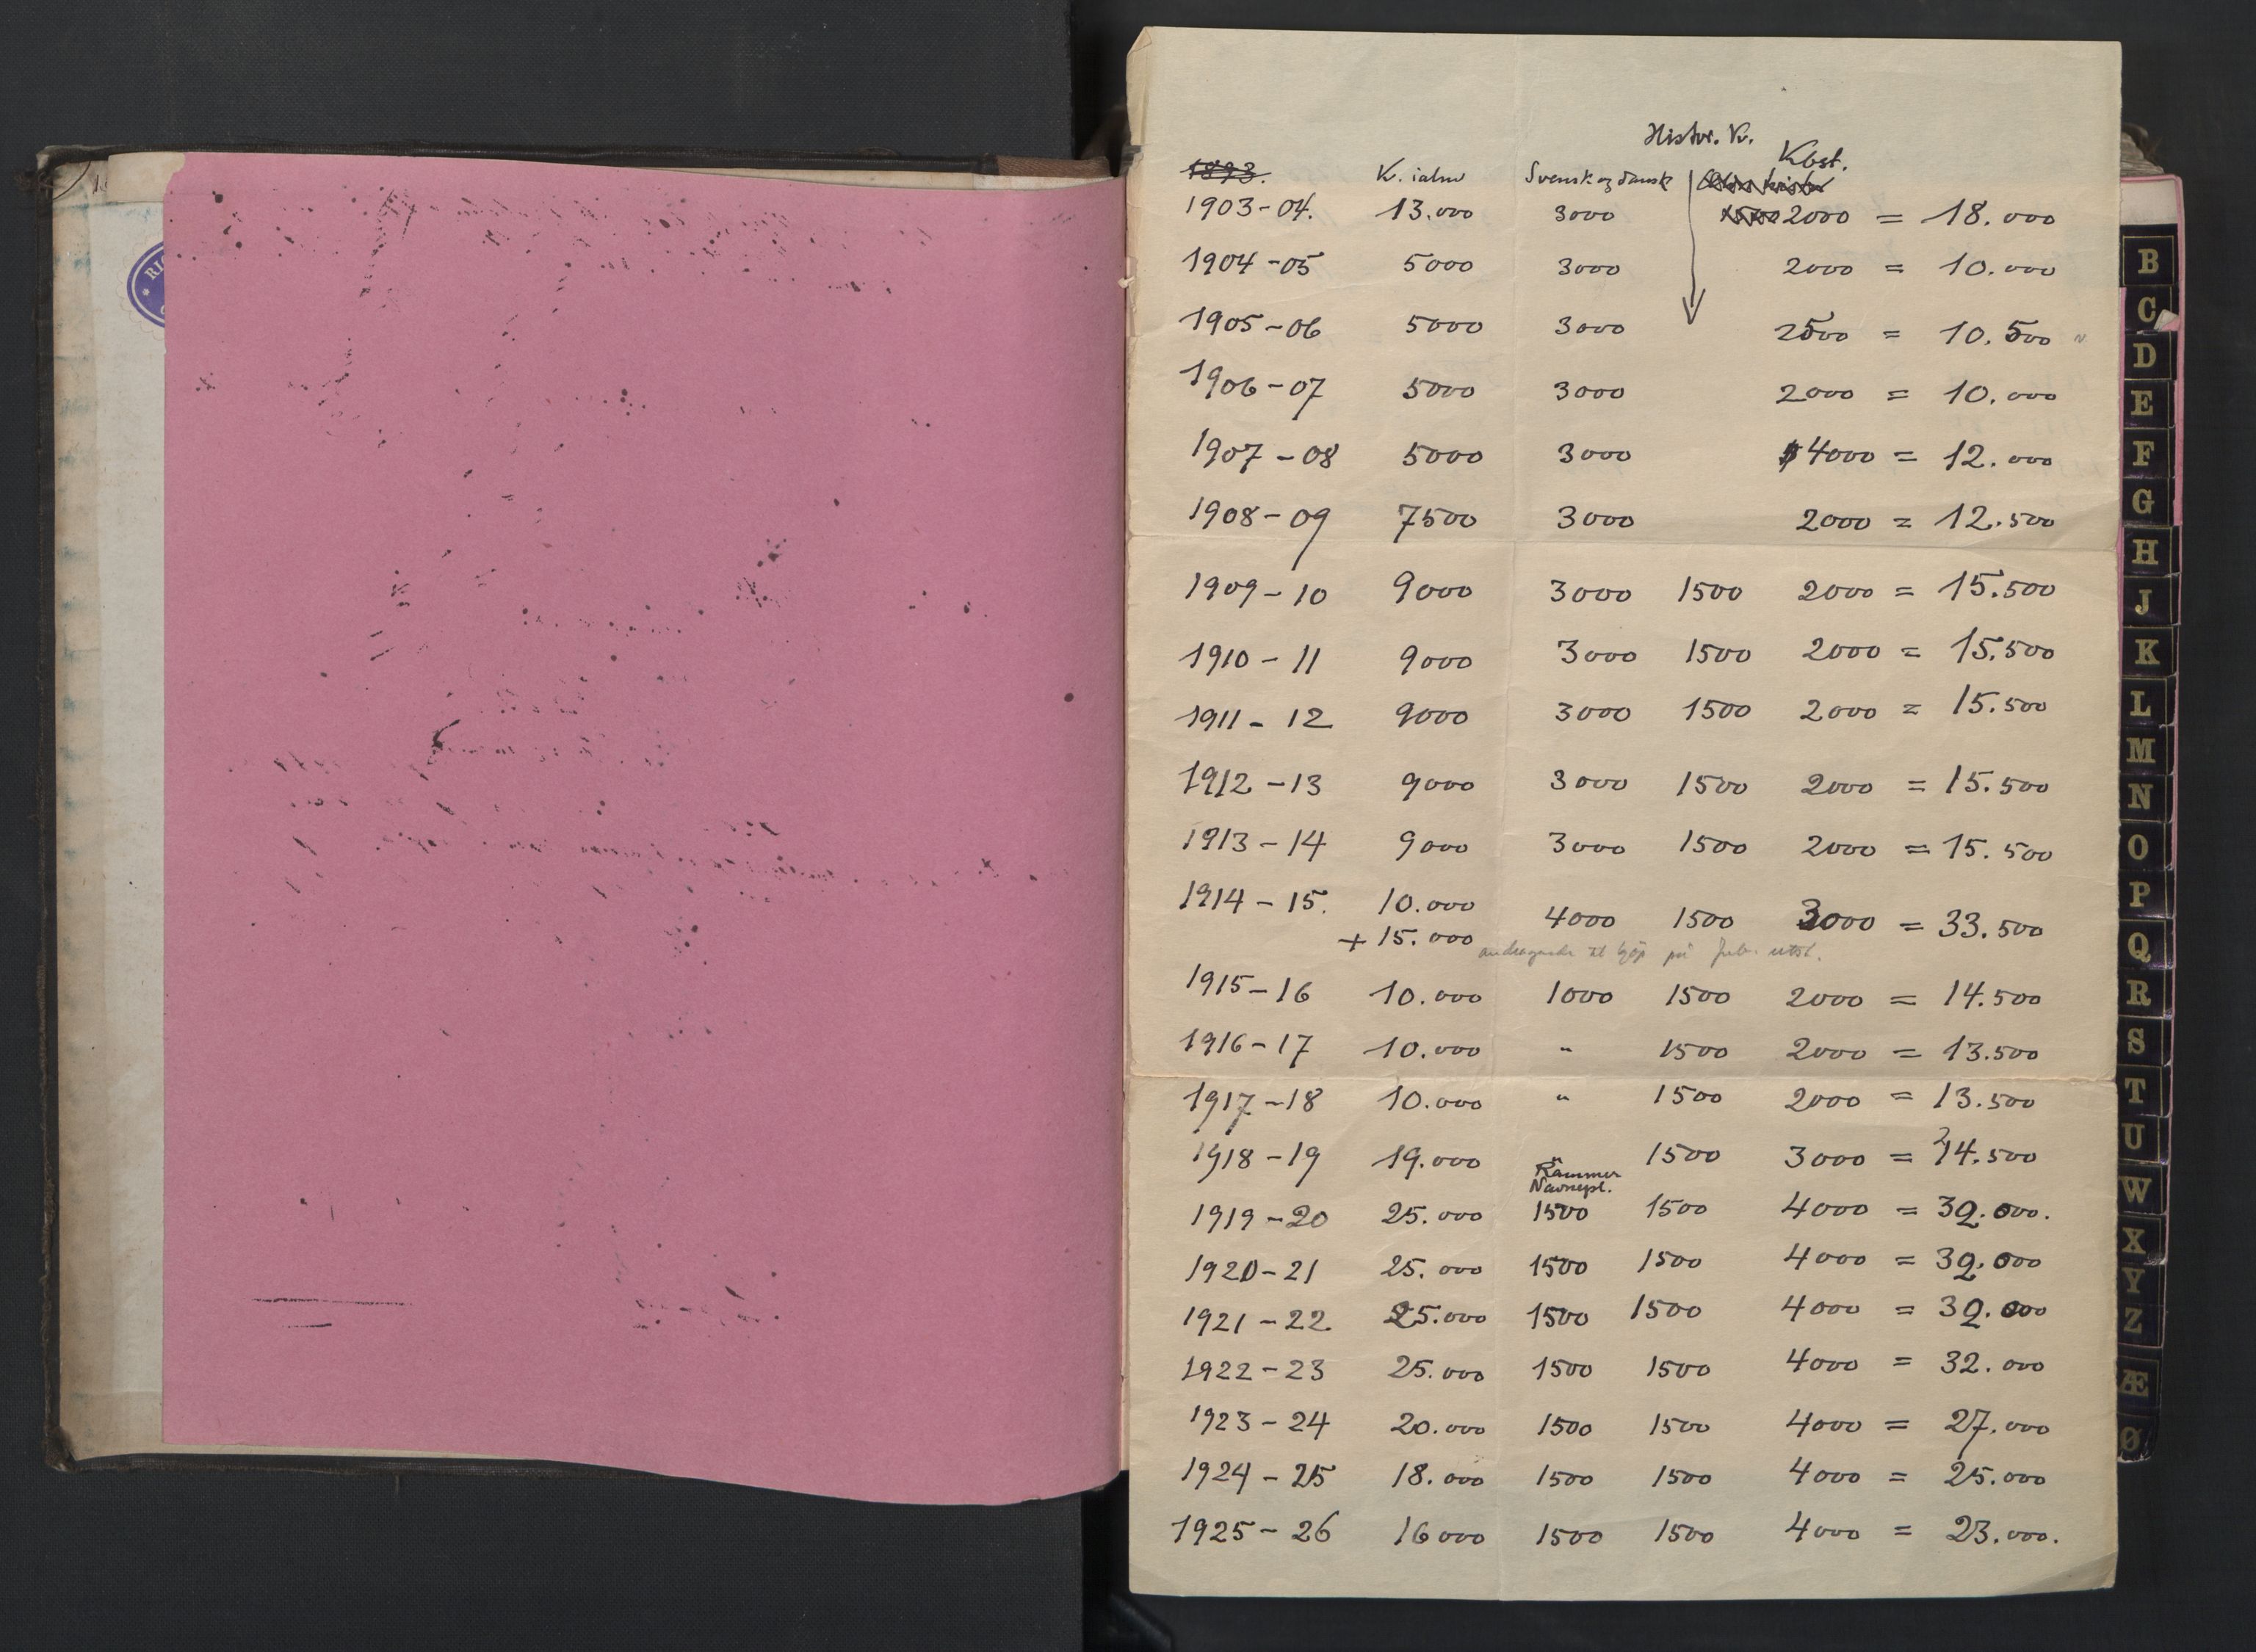 Histor. Kv.
Kbst.
1893. K. ialm Svensk og dansk
1903-04. 13.000 3000 1500 2000 = 18.000
1904-05 5000 3000 2000 = 10.000
1905-06 5000 3000 2500 = 10.500
1906-07 5000 3000 2000 = 10.000
1907-08 5000 3000 4000 = 12.000
1908-09 7500 3000 2000 = 12.500
1909-10 9000 3000 1500 2000 = 15.500
1910-11 9000 3000 1500 2000 = 15.500
1911-12 9000 3000 1500 2000 = 15.500
1912-13 9000 3000 1500 2000 = 15.500
1913-14 9000 3000 1500 2000 = 15.500
1914-15. 10.000 4000 1500 3000 = 33.500
+ 15.000 til kjøp på Jub. utst.
1915-16 10.000 1000 1500 2000 = 14.500
1916-17 10.000 " 1500 2000 = 13.500
1917-18 10.000 " 1500 2000 = 13.500
1918-19 19.000 " 1500 3000 = 24.500
Rammer
Navnepl.
1919-20 25.000 1500 1500 4000 = 32.000.
1920-21 25.000 1500 1500 4000 = 32.000
1921-22 25.000 1500 1500 4000 = 32.000
1922-23 25.000 1500 1500 4000 = 32.000
1923-24 20.000 1500 1500 4000 = 27.000
1924-25 18.000 1500 1500 4000 = 25.000
1925-26 16000 1500 1500 4000 = 23.000.
B
C
D
E
F
G
H
J
K
L
M
N
O
P
Q
R
S
T
U
W
X
Y
Z
Æ
Ø